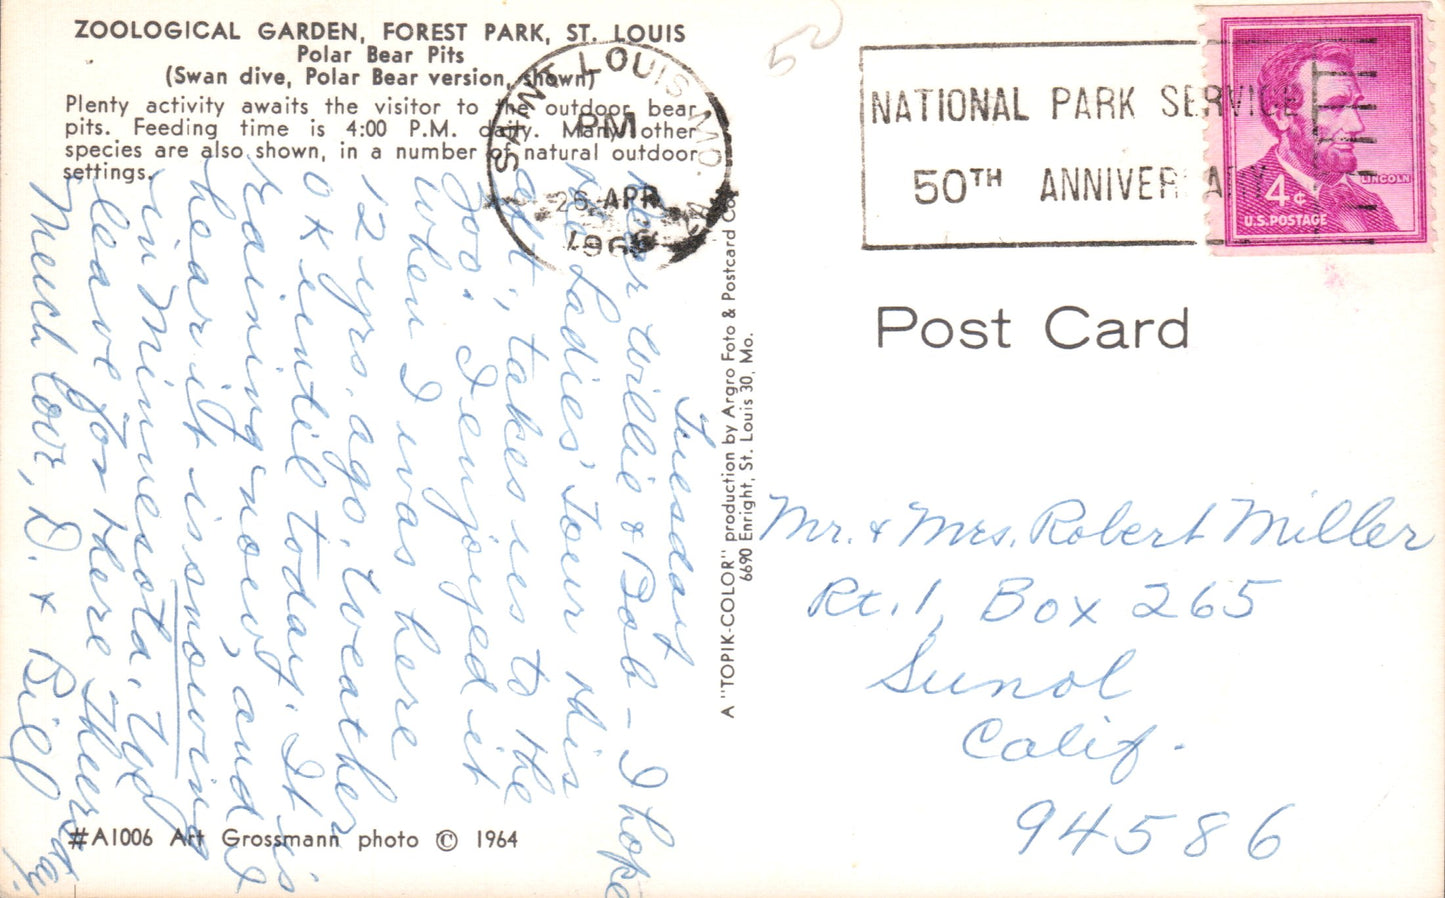 ZOOLOGICAL GARDEN, FOREST PARK, ST. LOUIS
Polar Bear Pits
(Swan dive, Polar Bear version, shown)
Plenty activity awaits the visitor to the outdoor bear
pits. Feeding time is 4:00 P.M. daily. Many other
species are also shown, in a number of natural outdoor
settings.
Tuesday
Dear Willie & Bob – I hope
the Ladies' Tour this
aft., takes us to the
Zoo. I enjoyed it
when I was here
12 yrs. ago. Weather
OK until today. It is
raining now, and I
hear it is snowing
in Minnesota. We
leave for there Thursday.
Much love, D. & Bill
#A1006 Art Grossmann photo © 1964
A "TOPIK-COLOR" production by Argro Foto & Postcard Co.
6690 Enright, St. Louis 30, Mo.
50
SAINT LOUIS MO.
PM
26 APR
1966
NATIONAL PARK SERVICE
50TH ANNIVERSARY
LINCOLN
4¢
U.S. POSTAGE
Post Card
Mr. & Mrs. Robert Miller
Rt. 1, Box 265
Sunol
Calif.
94586